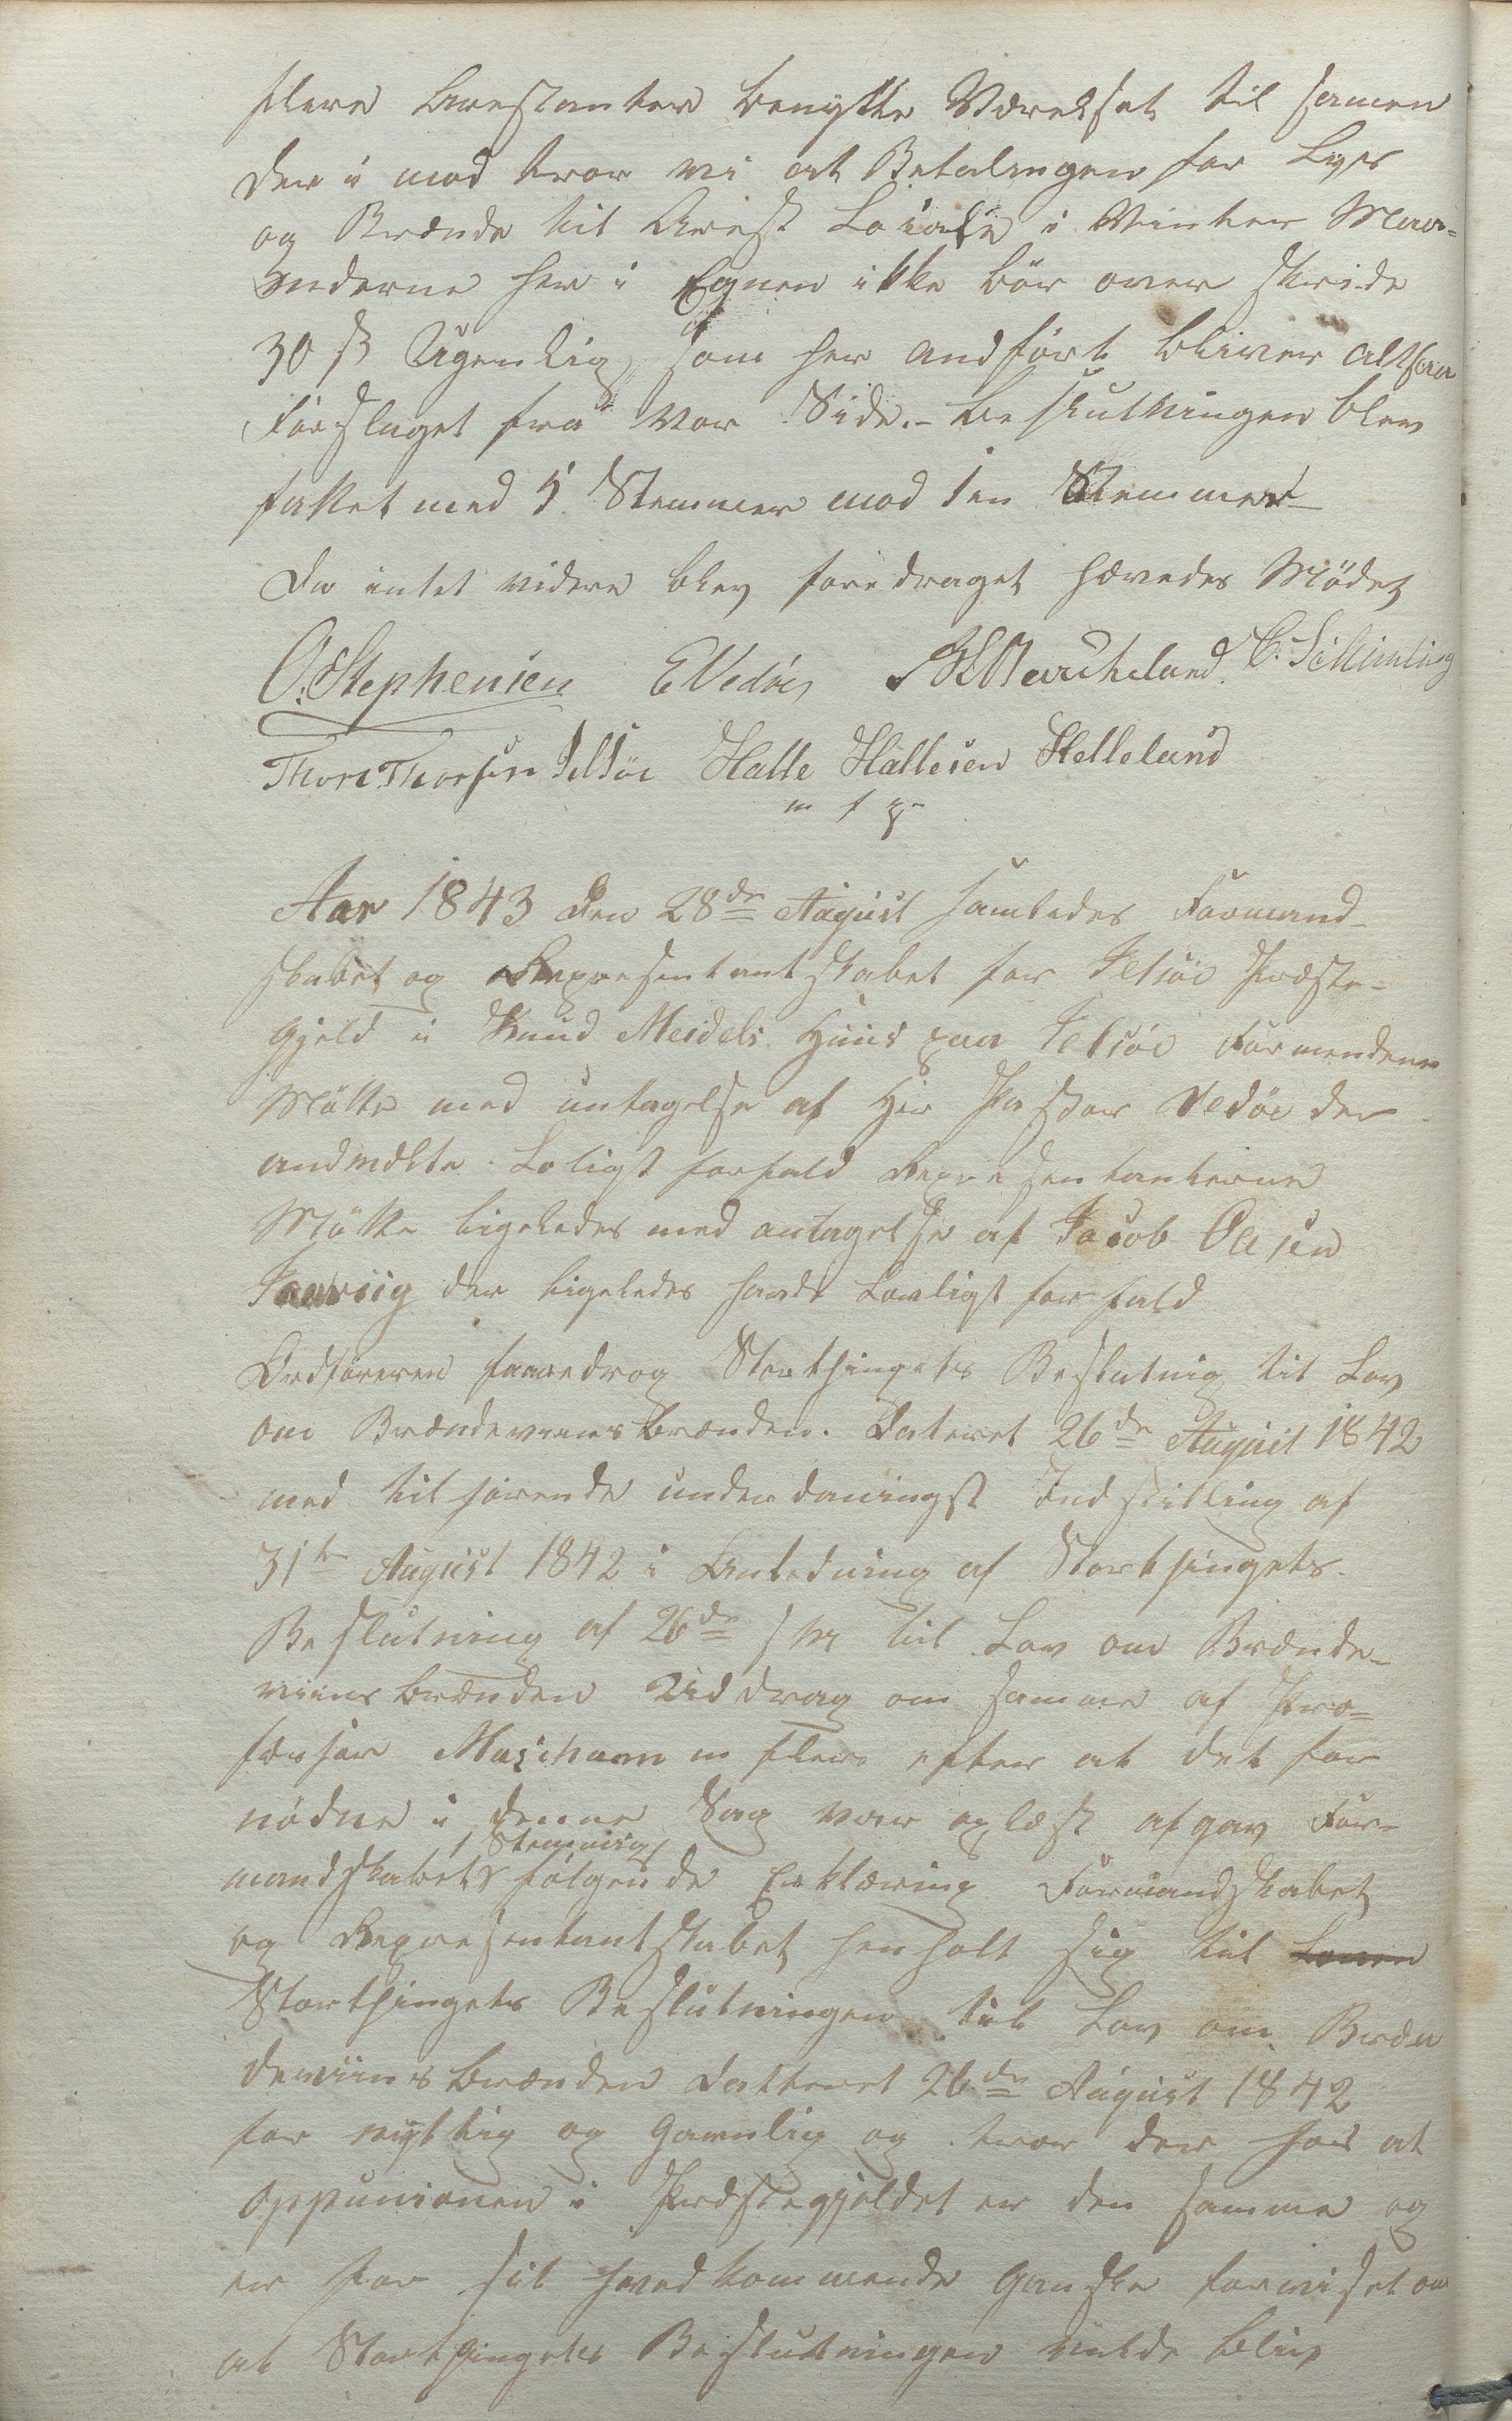 flere Arestanter benytte Værelset til samen
der i mod tror vi at Betalingen for Lys
og Brænde til Arest Locale i Vinter Maa-
nderne her i Egnen ikke bör over skride
30 ß Ugenlig, som her andført bliver altsaa
Forslaget fra Vor Side. – Beslutningen blev
fattet med 5 Stemmer mod 1en Stemmer
Da intet videre blev foredraget hævedes Mödet
O. Stephensen E Vedöe
Thore Thorsen Jelsöe Halle Hallesen Helleland
Aar 1843 den 28de August samledes Formand-
skabet og Representantskabet for Jelsöe Præste-
Gjeld i Knud Meidels Huus paa Jelsöe Formendene
Mötte med untagelse af Her Pastor Vedöe der
andmeldte Loligt forfald Representanterne
Mötte ligeledes med untagelse af Jacob Olesen
der ligeledes havde Lovligt forfald
Ordføreren foredrog Storthingets Beslutnig til Lov
om Brændeviins Brænden. Dateret 26de August 1842
med tilhörende underdaningst Indstilling af
31te August 1842 i Anledning af Storthingets
Beslutning af 26de til Lov om Brænde-
viins Brænden Uddrag om samme af Pro-
fessor Maschman m flere efter at det for
nödne i denne Sag var oplæst afgav For-
mandskabets Stemmig fölgende Erklæring Formandskabet
og Representantskabet henholt sig til Loven
Storthingets Beslutningen til Lov om Bræn
deviins Brænden Datteret 26de August 1842
for nyttig og Gavnlig og tror der hos at
Oppunionen i Præstegjeldet er den samme og
er for sit Hvedkommende Ganske forviset om
at Storthingets Beslutningen vilde bliv